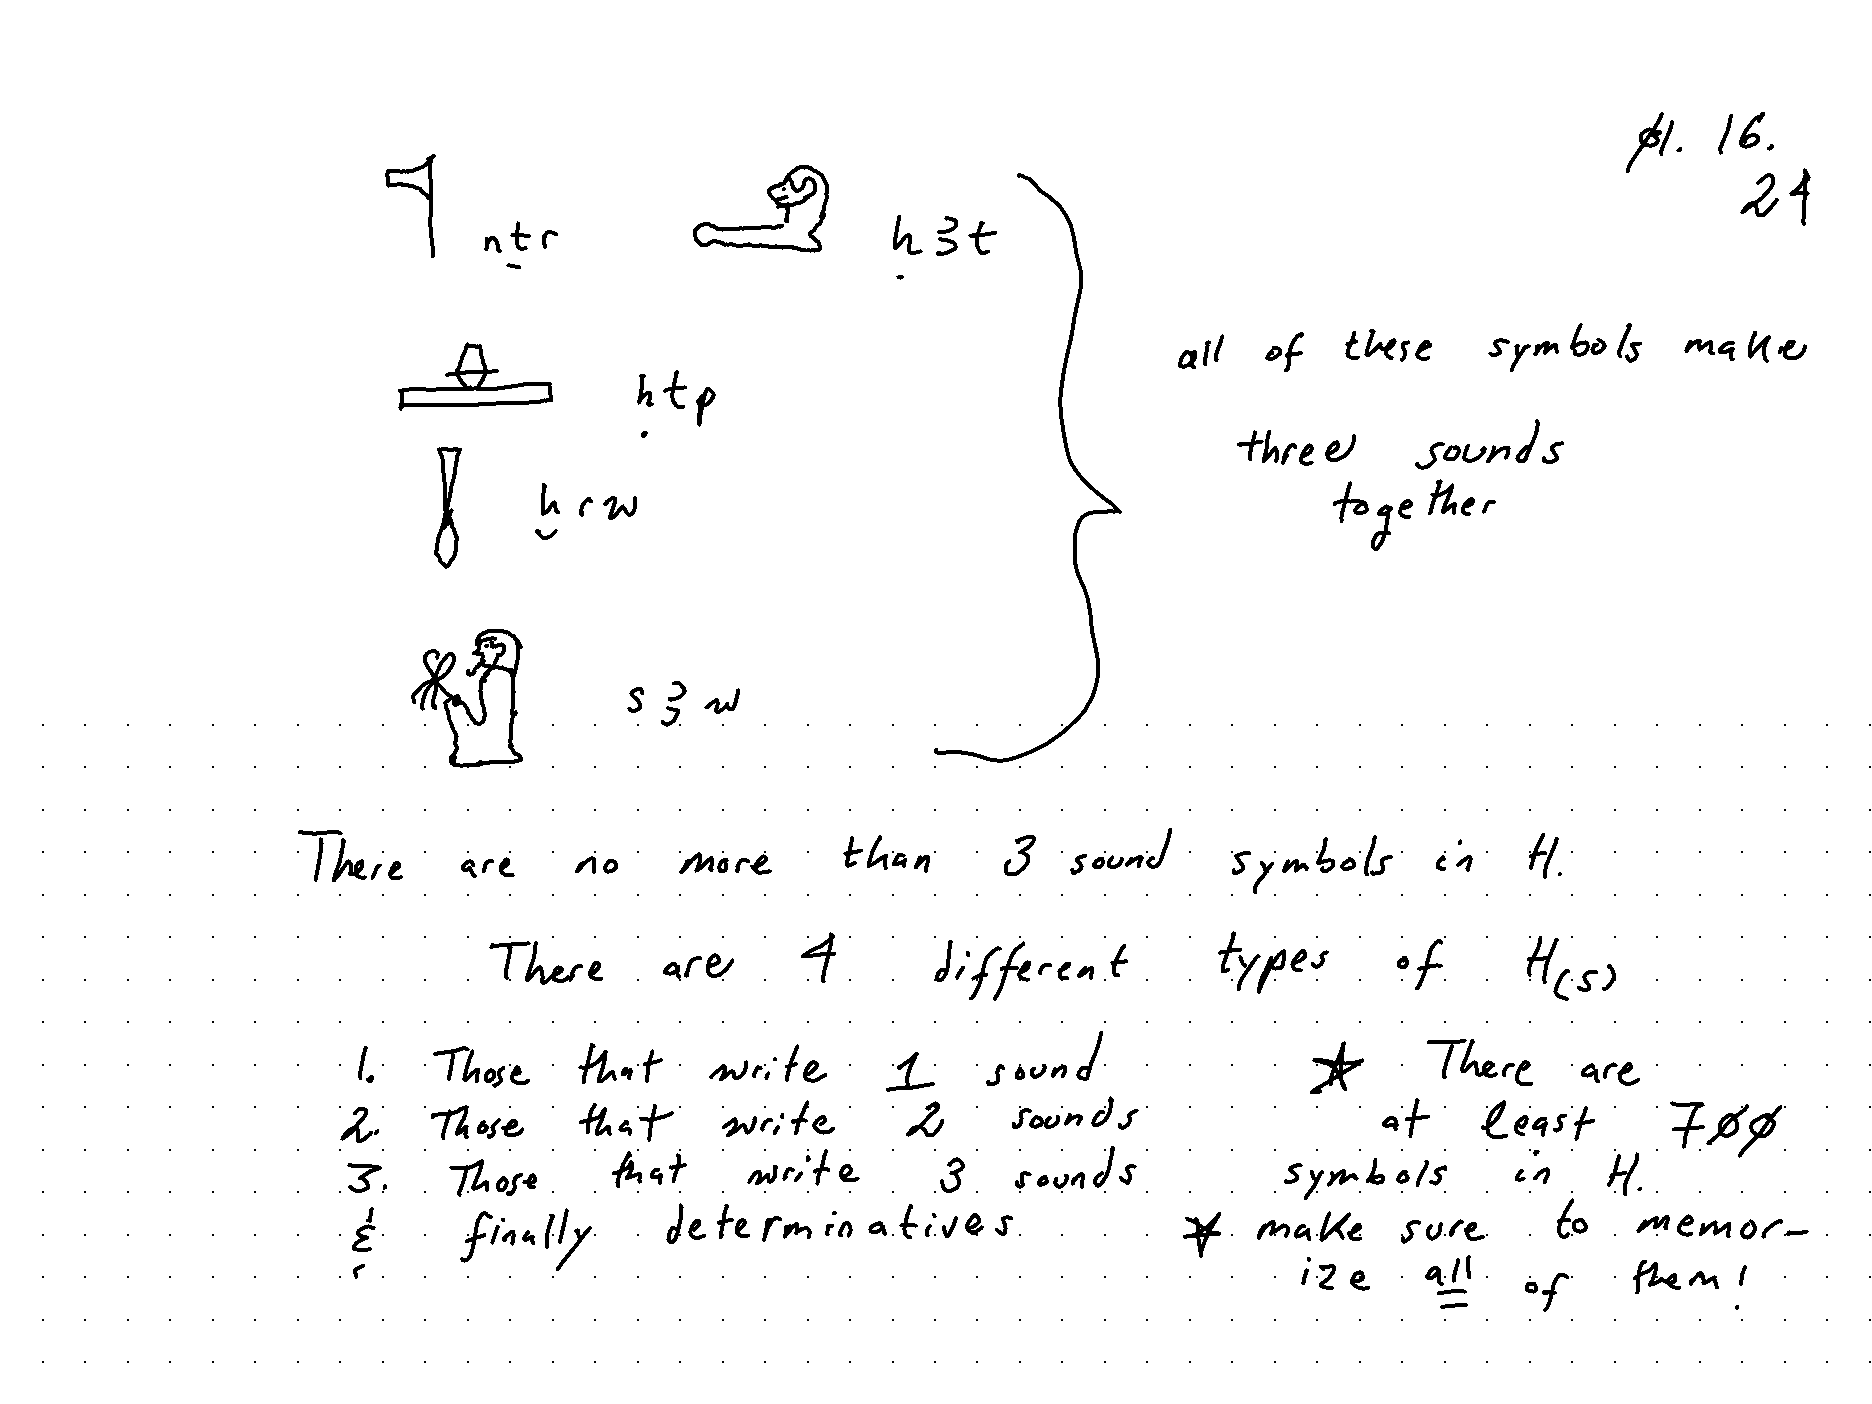 01. 16.
24
nṯr ḥ3t
ḥtp
ḫrw
s3w
all of these symbols make
three sounds
together
There are no more than 3 sound symbols in H.
There are 4 different types of H(s)
1. Those that write 1 sound
2. Those that write 2 sounds
3. Those that write 3 sounds
& finally determinatives
* There are
at least 700
symbols in H.
* make sure to memor-
ize all of them!